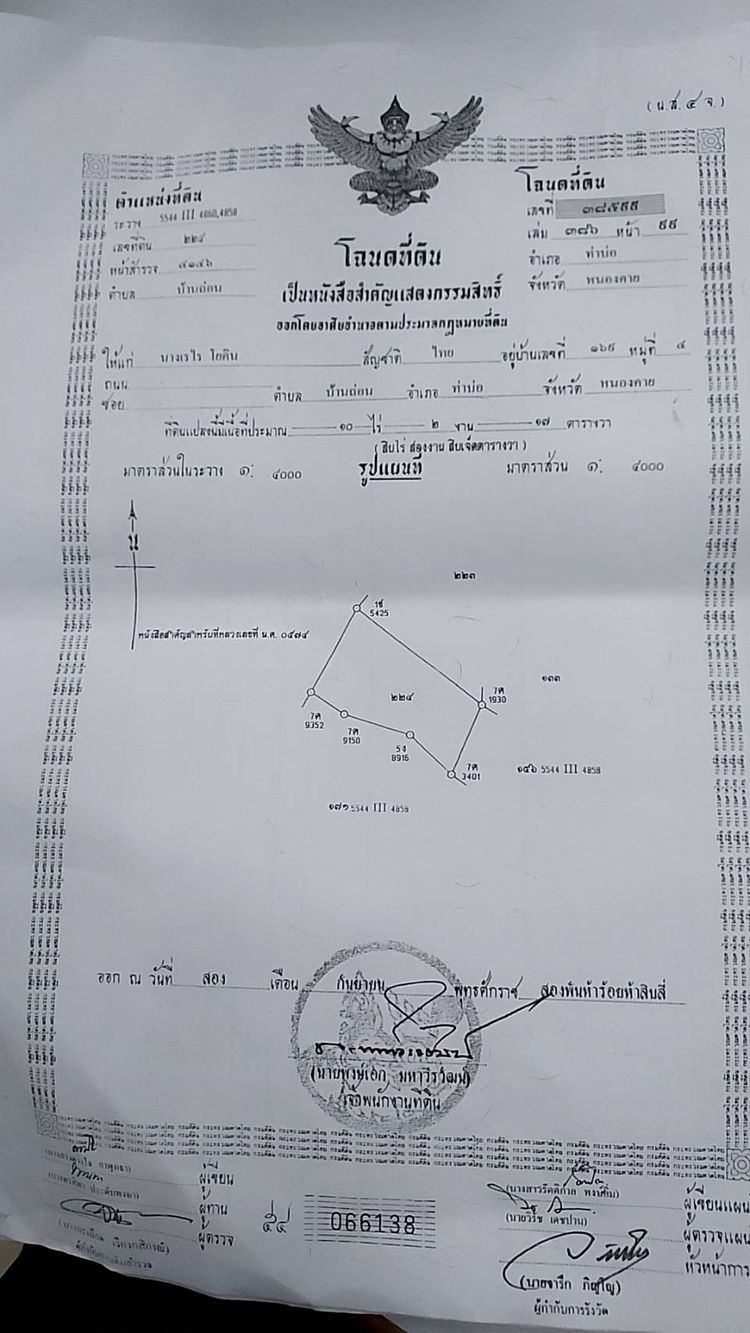 (น.ส. ๔ จ.)
ตำแหน่งที่ดิน
ระวาง 5544 III 4860,4858
เลขที่ดิน ๒๒๔
หน้าสำรวจ ๔๑๔๖
ตำบล บ้านถ่อน
โฉนดที่ดิน
เลขที่
เล่ม ๓๘๖ หน้า ๕๕
อำเภอ ท่าบ่อ
จังหวัด หนองคาย
โฉนดที่ดิน
เป็นหนังสือสำคัญแสดงกรรมสิทธิ์
ออกโดยอาศัยอำนาจตามประมวลกฎหมายที่ดิน
ให้แก่ นางเรไร โยคิน สัญชาติ ไทย อยู่บ้านเลขที่ ๑๖๕ หมู่ที่ ๔
ถนน
ซอย ตำบล บ้านถ่อน อำเภอ ท่าบ่อ จังหวัด หนองคาย
ที่ดินแปลงนี้มีเนื้อที่ประมาณ ๑๐ ไร่ ๒ งาน ๑๗ ตารางวา
(สิบไร่ สองงาน สิบเจ็ดตารางวา)
มาตราส่วนในระวาง ๑: ๔๐๐๐ รูปแผนที่ มาตราส่วน ๑: ๔๐๐๐
น
๒๒๓
หนังสือสำคัญสำหรับที่หลวงเลขที่ น.ค. ๐๕๗๔
5425
๒๒๔
๑๓๓
7ค
1930
7ค
9352
7ค
9150
5ง
8916
7ค
3401
๑๔๖ 5544 III 4858
๑๗๑ 5544 III 4858
ออก ณ วันที่ สอง เดือน กันยายน พุทธศักราช สองพันห้าร้อยห้าสิบสี่
(นายพงษ์เอก มหาวีรวัฒน์)
เจ้าพนักงานที่ดิน
ผู้เขียน
ผู้ทาน
ผู้ตรวจ
066138
ผู้เขียนแผน
(นายวิรัช เดชปาน)
ผู้ตรวจแผน
หัวหน้าการ
(นายจารึก ภิญโญ)
ผู้กำกับการรังวัด